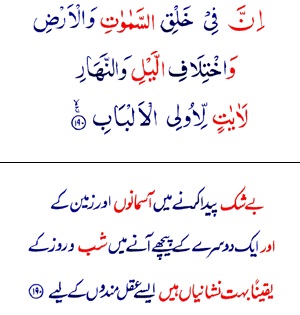 اِنَّ فِیْ خَلْقِ السَّمٰوٰتِ وَالْاَرْضِ
وَاخْتِلَافِ الَّیْلِ وَالنَّهَارِ
لَاٰیٰتٍ لِّاُولِی الْاَلْبَابِ ﴿۱۹۰﴾
بے شک پیدا کرنے میں آسمانوں اور زمین کے
اور ایک دوسرے کے پیچھے آنے میں شب و روز کے
یقیناً بہت نشانیاں ہیں ایسے عقل مندوں کے لیے ﴿۱۹۰﴾